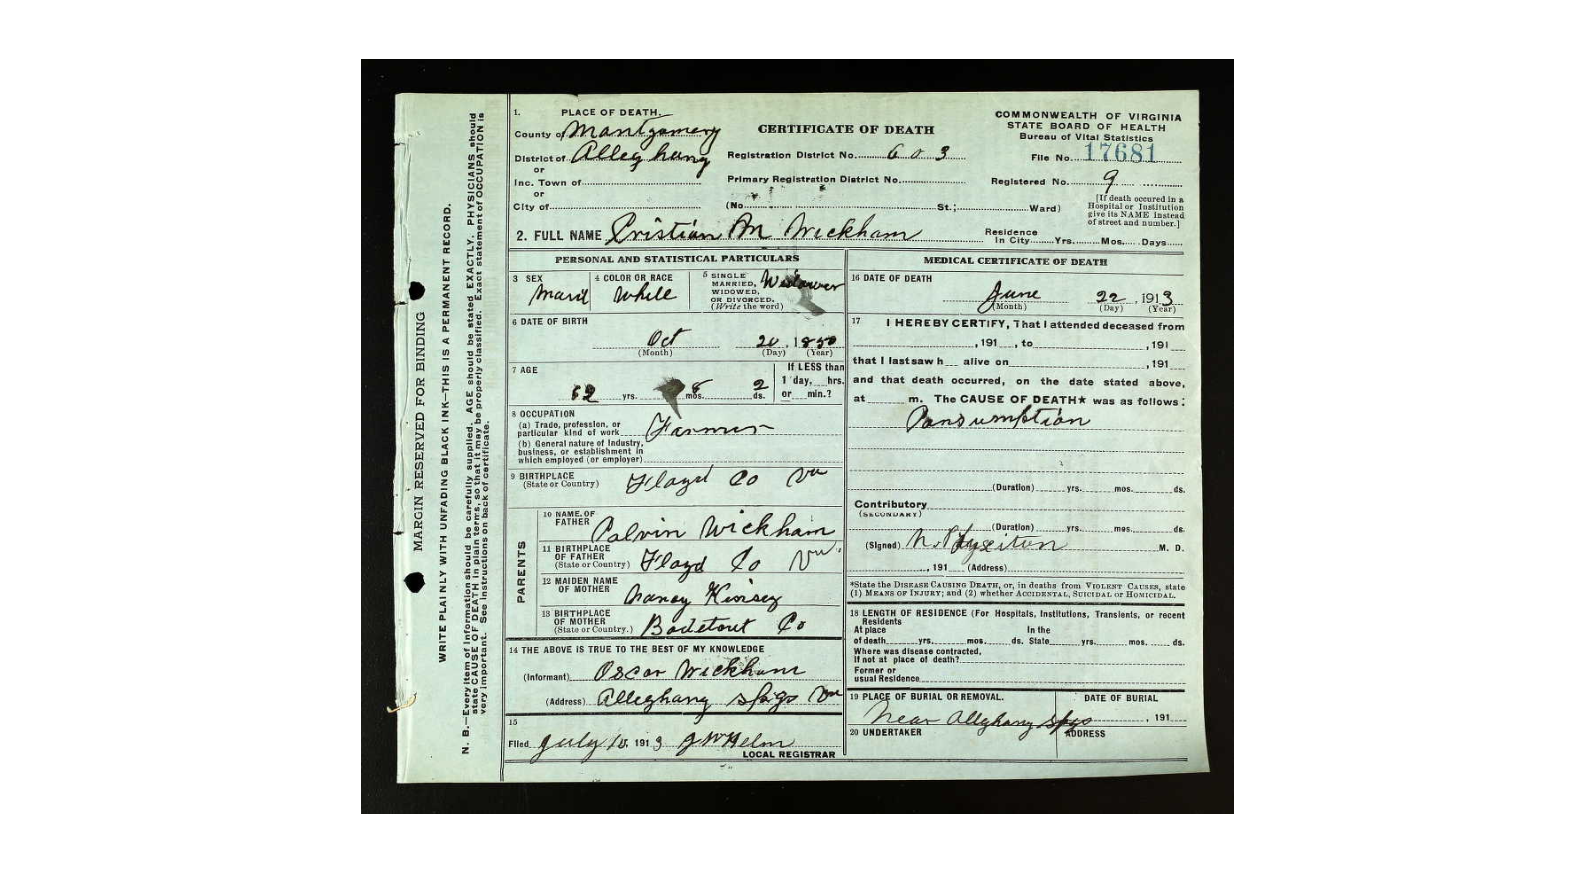 MARGIN RESERVED FOR BINDING
WRITE PLAINLY WITH UNFADING BLACK INK—THIS IS A PERMANENT RECORD.
N. B.—Every item of information should be carefully supplied. AGE should be stated EXACTLY. PHYSICIANS should
state CAUSE OF DEATH in plain terms, so that it may be properly classified. Exact statement of OCCUPATION is
very important. See instructions on back of certificate.
1. PLACE OF DEATH.
County of Mantgomery
District of Alleghany
or
Inc. Town of
or
City of
CERTIFICATE OF DEATH
Registration District No. 603
Primary Registration District No.
(No. St.; Ward)
COMMONWEALTH OF VIRGINIA
STATE BOARD OF HEALTH
Bureau of Vital Statistics
File No. 17681
Registered No. 9
[If death occured in a
Hospital or Institution
give its NAME instead
of street and number.]
2. FULL NAME Cristian M Wickham
Residence
In City Yrs. Mos. Days
PERSONAL AND STATISTICAL PARTICULARS
3 SEX
4 COLOR OR RACE
White
5 SINGLE
MARRIED,
WIDOWED,
OR DIVORCED.
(Write the word)
Widower
6 DATE OF BIRTH
Oct 20, 1850
(Month) (Day) (Year)
7 AGE
62 yrs. 8 mos. 2 ds.
If LESS than
1 day, hrs.
or min.?
8 OCCUPATION
(a) Trade, profession, or
particular kind of work Farmer
(b) General nature of Industry,
business, or establishment in
which employed (or employer)
9 BIRTHPLACE
(State or Country) Floyd Co Va
PARENTS
10 NAME OF
FATHER Calvin Wickham
11 BIRTHPLACE
OF FATHER
(State or Country) Floyd Co Va
12 MAIDEN NAME
OF MOTHER Nancy Kinsey
13 BIRTHPLACE
OF MOTHER
(State or Country.) Bodetout Co
14 THE ABOVE IS TRUE TO THE BEST OF MY KNOWLEDGE
(Informant) Oscar Wickham
(Address) Alleghany Spgs Va
15
Filed July 10, 1913 J W Helm
LOCAL REGISTRAR
MEDICAL CERTIFICATE OF DEATH
16 DATE OF DEATH
June 22, 1913
(Month) (Day) (Year)
17 I HEREBY CERTIFY, That I attended deceased from
, 191 , to , 191
that I last saw h alive on , 191
and that death occurred, on the date stated above,
at m. The CAUSE OF DEATH★ was as follows:
Consumption
(Duration) yrs. mos. ds.
Contributory
(SECONDARY)
(Duration) yrs. mos. ds.
(Signed) M. D.
, 191 (Address)
*State the DISEASE CAUSING DEATH, or, in deaths from VIOLENT CAUSES, state
(1) MEANS OF INJURY; and (2) whether ACCIDENTAL, SUICIDAL or HOMICIDAL.
18 LENGTH OF RESIDENCE (For Hospitals, Institutions, Transients, or recent
Residents
At place In the
of death yrs. mos. ds. State yrs. mos. ds.
Where was disease contracted,
If not at place of death?
Former or
usual Residence
19 PLACE OF BURIAL OR REMOVAL. DATE OF BURIAL
Near Alleghany Spgs , 191
20 UNDERTAKER ADDRESS